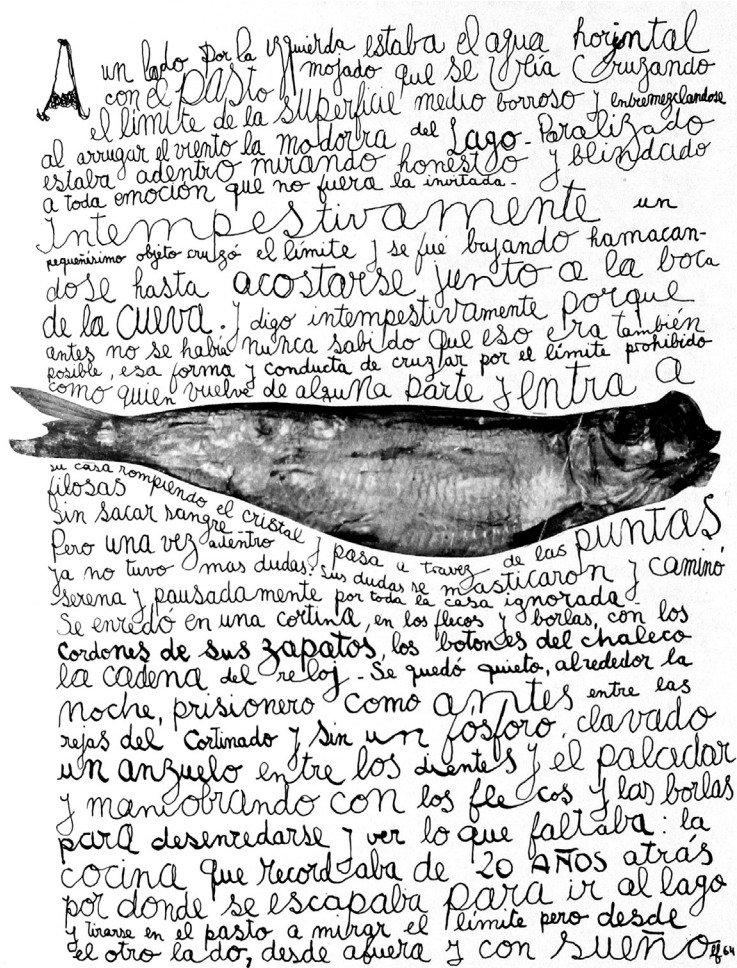 A un lado por la izquierda estaba el agua horizontal
con el pasto mojado que se veía cruzando
el límite de la superficie medio borroso y entremezclandose
al arrugar el viento la modorra del Lago - Paralizado
estaba adentro mirando honesto y blindado
a toda emoción que no fuera la invitada -
Intempestivamente un
pequeñisimo objeto cruzó el límite y se fué bajando hamacan-
dose hasta acostarse junto a la boca
de la cueva. y digo intempestivamente porque
antes no se había nunca sabido que eso era también
posible, esa forma y conducta de cruzar por el límite prohibido
como quien vuelve de alguna parte y entra a
su casa rompiendo el cristal y pasa a travez de las puntas
filosas
sin sacar sangre -
Pero una vez adentro
ya no tuvo mas dudas. sus dudas se masticaron y caminó
serena y pausadamente por toda la casa ignorada -
Se enredó en una cortina, en los flecos y borlas, con los
cordones de sus zapatos, los botones del chaleco
la cadena del reloj - Se quedó quieto, alrededor la
noche, prisionero como antes entre las
rejas del cortinado y sin un fosforo, clavado
un anzuelo entre los dientes y el paladar
y maniobrando con los flecos y las borlas
para desenredarse y ver lo que faltaba: la
cocina que recordaba de 20 AÑOS atrás
por donde se escapaba para ir al lago
y tirarse en el pasto a mirar el límite pero desde
el otro lado, desde afuera y con sueño 64